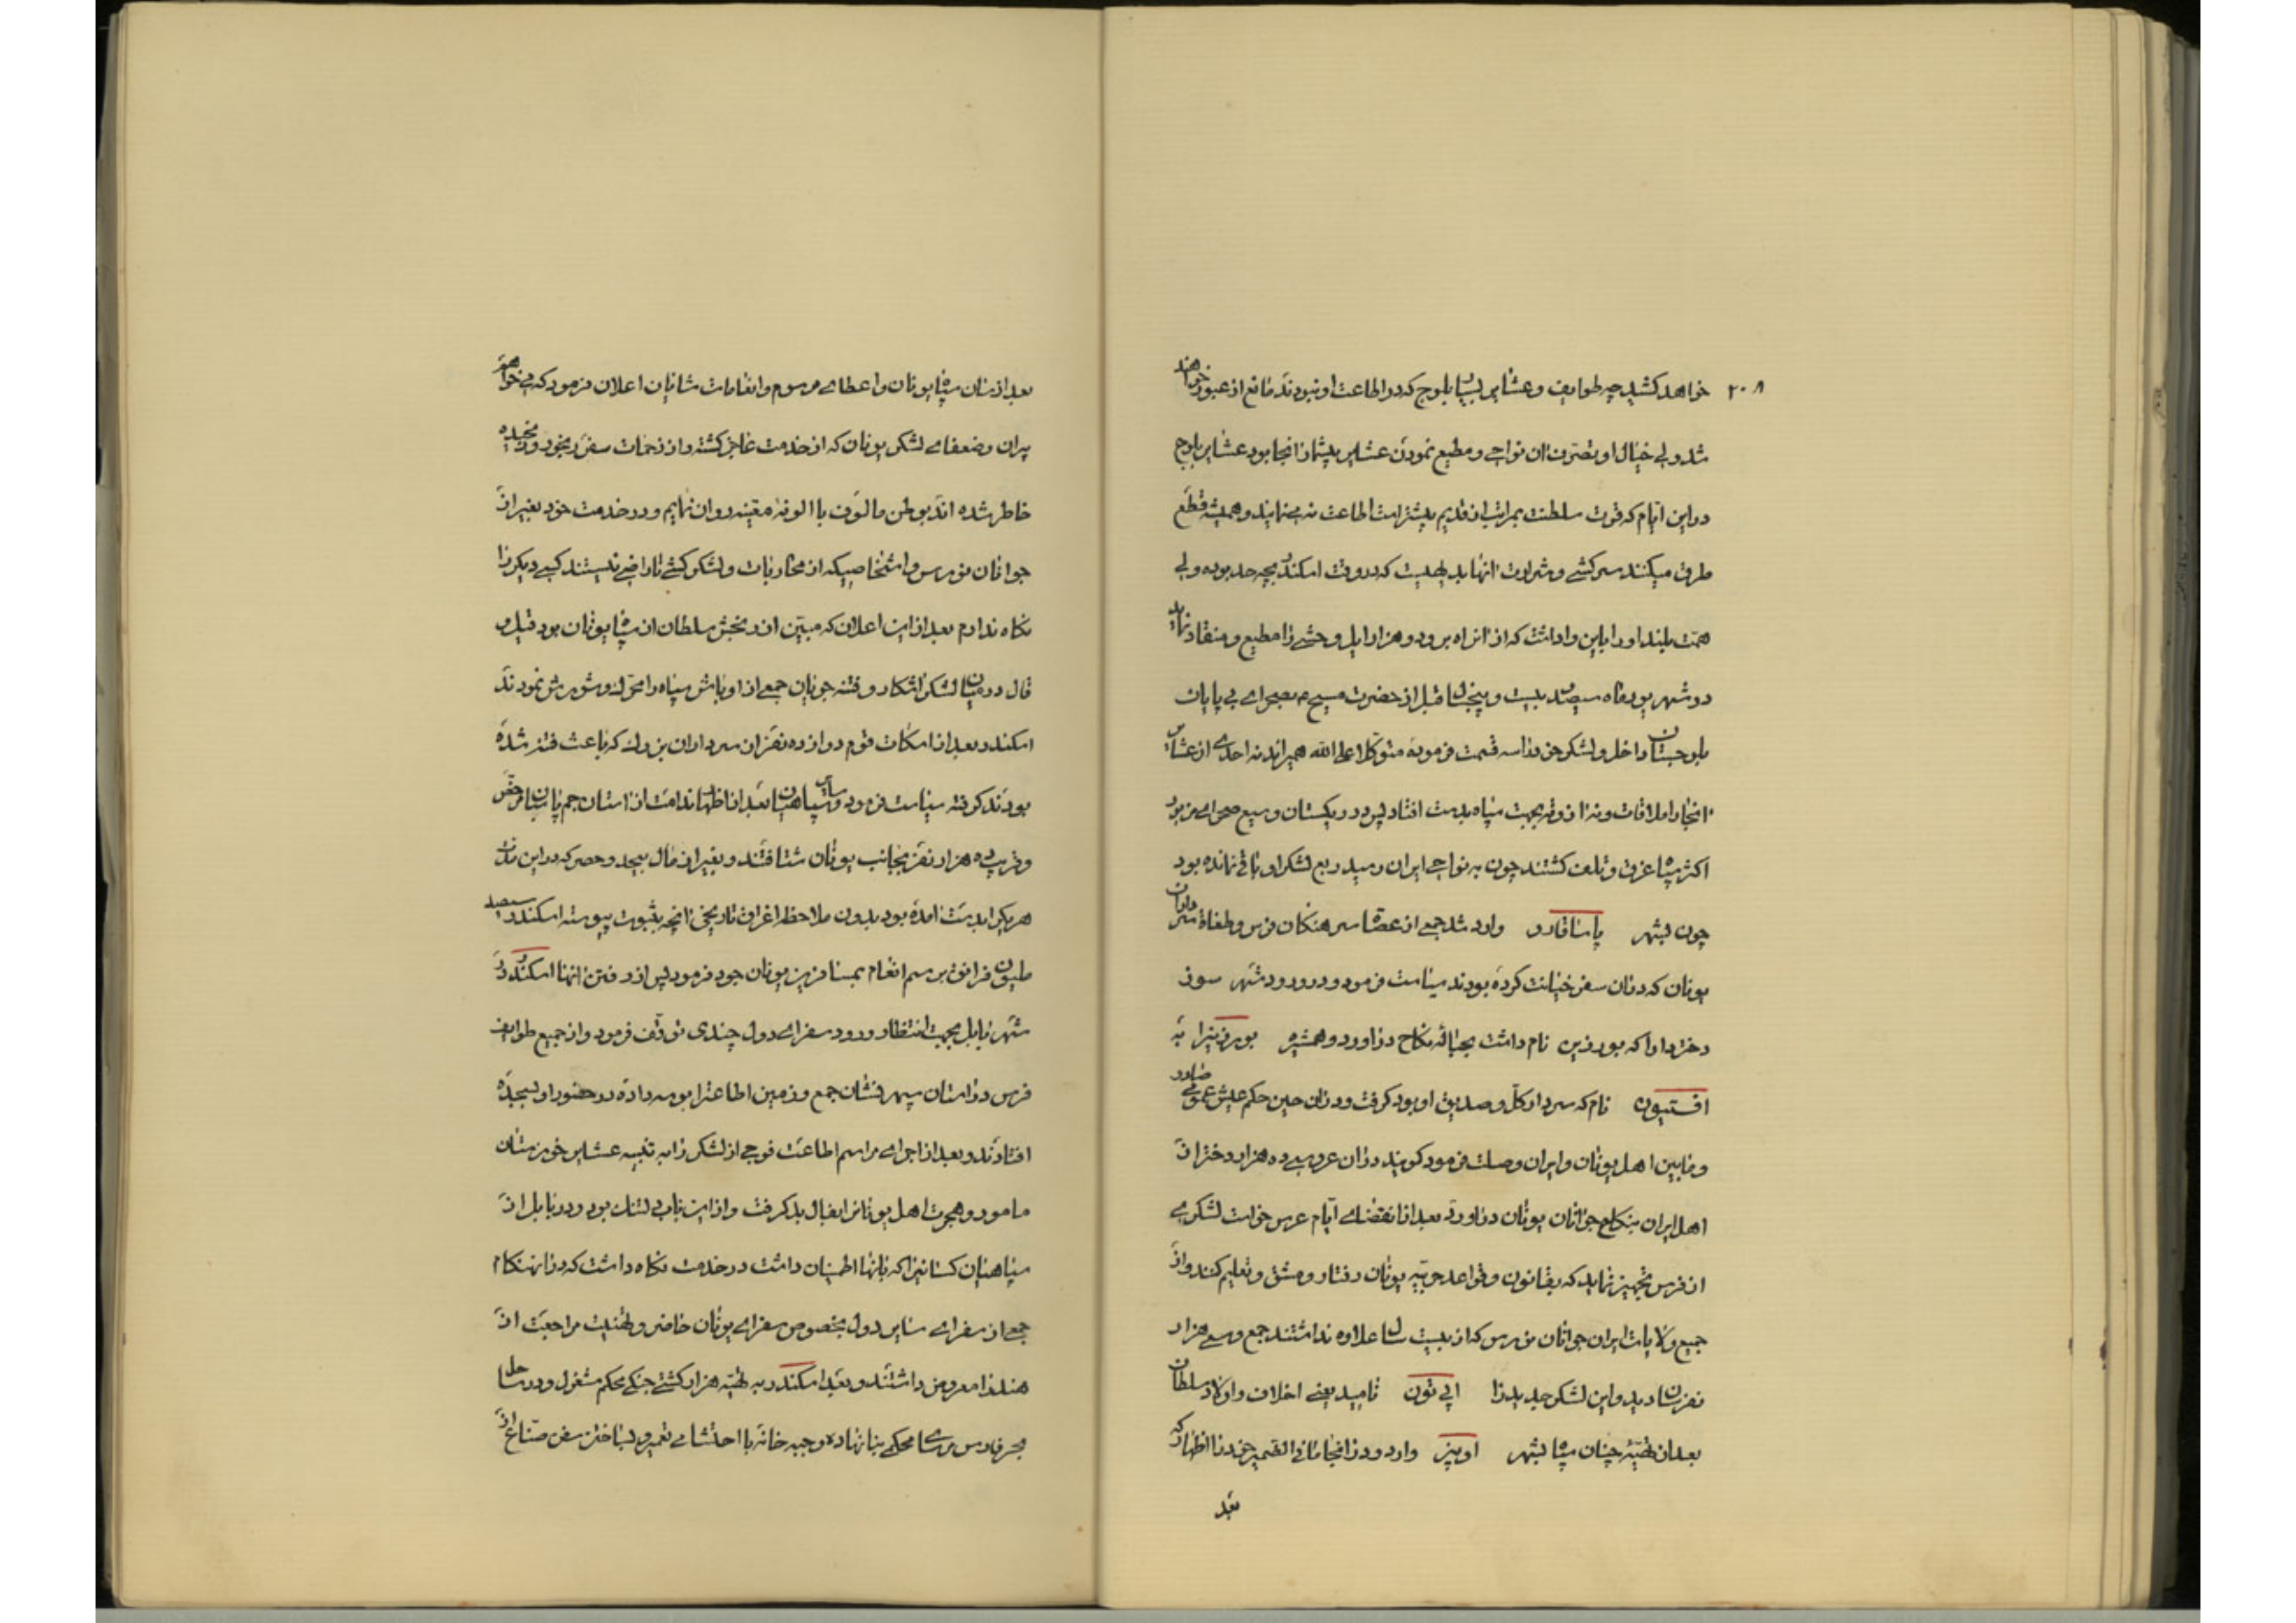 ۲۰۸
خواهد کشید چه طوایف و عشایر بسیار بلوچ که در اطاعت او نبودند مانع از عبور خواهند
شد ولی خیال او تصرف آن نواحی و مطیع نمودن عشایر بیشمار آنجا بود عشایر بلوچ
در این ایام که قوت سلطنت بمراتب از قدیم بیشتر است اطاعت نه مینمایند و همیشه قطع
طرق میکنند سرکشی و شرارت آنها بدیهیست که در وقت اسکندر بچه حد بوده ولی
همت بلند او را باین واداشت که از آن راه برود و هزار ایل وحشی را مطیع و منقاد نماید
در شهریورماه سیصد بیست و پنجسال قبل از حضرت مسیح م بصحرای بی پایان
بلوچستان داخل و لشکر خود را سه قسمت فرموده متوکلا علی الله همیراند نه احدی از عشایر
آنجا را ملاقات و نه آذوقه بجهت سپاه بدست افتاد پس در ریکستان وسیع صحرای مزبور
اکثر سپاه غرق و تلف کشتند چون به نواحی ایران رسید ربع لشکر او باقی نمانده بود
چون بشهر پاساقارد وارد شد جمعی از عصاة سرهنکان فرس و طغاة سرداران
یونان که در آن سفر خیانت کرده بودند سیاست فرمود و در ورود شهر سوز
دختر دارا که بورزین نام داشت بحباله نکاح درآورد و همشیره بورزینرا به
افستیون نام که سردار کل و صدیق او بود کرفت و در آن حین حکم عیش عمومی صادر
و مابین اهل یونان و ایران وصلت فرمود کویند در آن عروسی ده هزار دختر از
اهل ایران بنکاح جوانان یونان درآورد بعد از انقضای ایام عرس خواست لشکری
از فرس تجهیز نماید که بقانون و قواعد حربیه یونان رفتار و مشق و تعلیم کنند و از
جمیع ولایات ایران جوانان نورس که از بیست سال علاوه نداشتند جمع و سی هزار
نفر سان دید و این لشکر جدید را اپی نون نامید یعنی اخلاف و اولاد سلطان
بعد از تهیه چنان سپاه بشهر اوپیز وارد و در آنجا مافی الضمیر خود را اظهار که
بعد
بعد از سان سپاه یونان و اعطای مرسوم و انعامات شایان اعلان فرمود که میخواهم
پیران و ضعفای لشکر یونان که از خدمت عاجز کشته و از زحمات سفر رنجور و رنجیده
خاطر شده اند بوطن مالوف با الوفه معینه روان نمایم و در خدمت خود بغیر از
جوانان نورس و اشخاصیکه از محاربات و لشکر کشی ناراضی نیستند کسی دیکر را
نکاه ندارم بعد از این اعلان که مبین از رنجش سلطان از سپاه یونان بود قیل و
قال در میان لشکر آشکار و فتنه جویان جمعی از اوباش سپاه را محرک و شورش نمودند
اسکندر بعد از اسکات قوم دوازده نفر از سرداران بزرک که باعث فتنه شده
بودند کرفته سیاست فرمود و سایر سپاهیان بعد از اظهار ندامت از آستان جم پاسبان مرخص
و قریب ده هزار نفر بجانب یونان شتافتند و بغیر از مال بیحد و حصر که در این مدت
هریک را بدست آمده بود بدون ملاحظه اغراق تاریخی آنچه بثبوت پیوسته اسکندر سیصد
ملیون فرانق برسم انعام بمسافرین یونان جود فرمود پس از رفتن آنها اسکندر در
شهر بابل بجهت انتظار ورود سفرای دول چندی توقف فرمود و از جمیع طوایف
فرس در آستان سپهر نشان جمع و زمین اطاعترا بوسه داده در حضور او بسجده
افتادند و بعد از اجرای مراسم اطاعت فوجی از لشکر را به تنبیه عشایر خوزستان
مامور و هجرت اهل یونانرا بفال بد کرفت و از این باب دلتنک بود و در بابل از
سپاهیان کسانیرا که بآنها اطمینان داشت در خدمت نکاه داشت که در آن هنکام
جمعی از سفرای سایر دول بخصوص سفرای یونان حاضر و تهنیت مراجعت از
هند را معروض داشتند و بعد اسکندر به تهیه هزار کشتی جنکی محکم مشغول و در ساحل
بحر فارس مرسای محکمی بنا نهاده و جبه خانه با احتشامی تعمیر و بساختن سفن صناع از